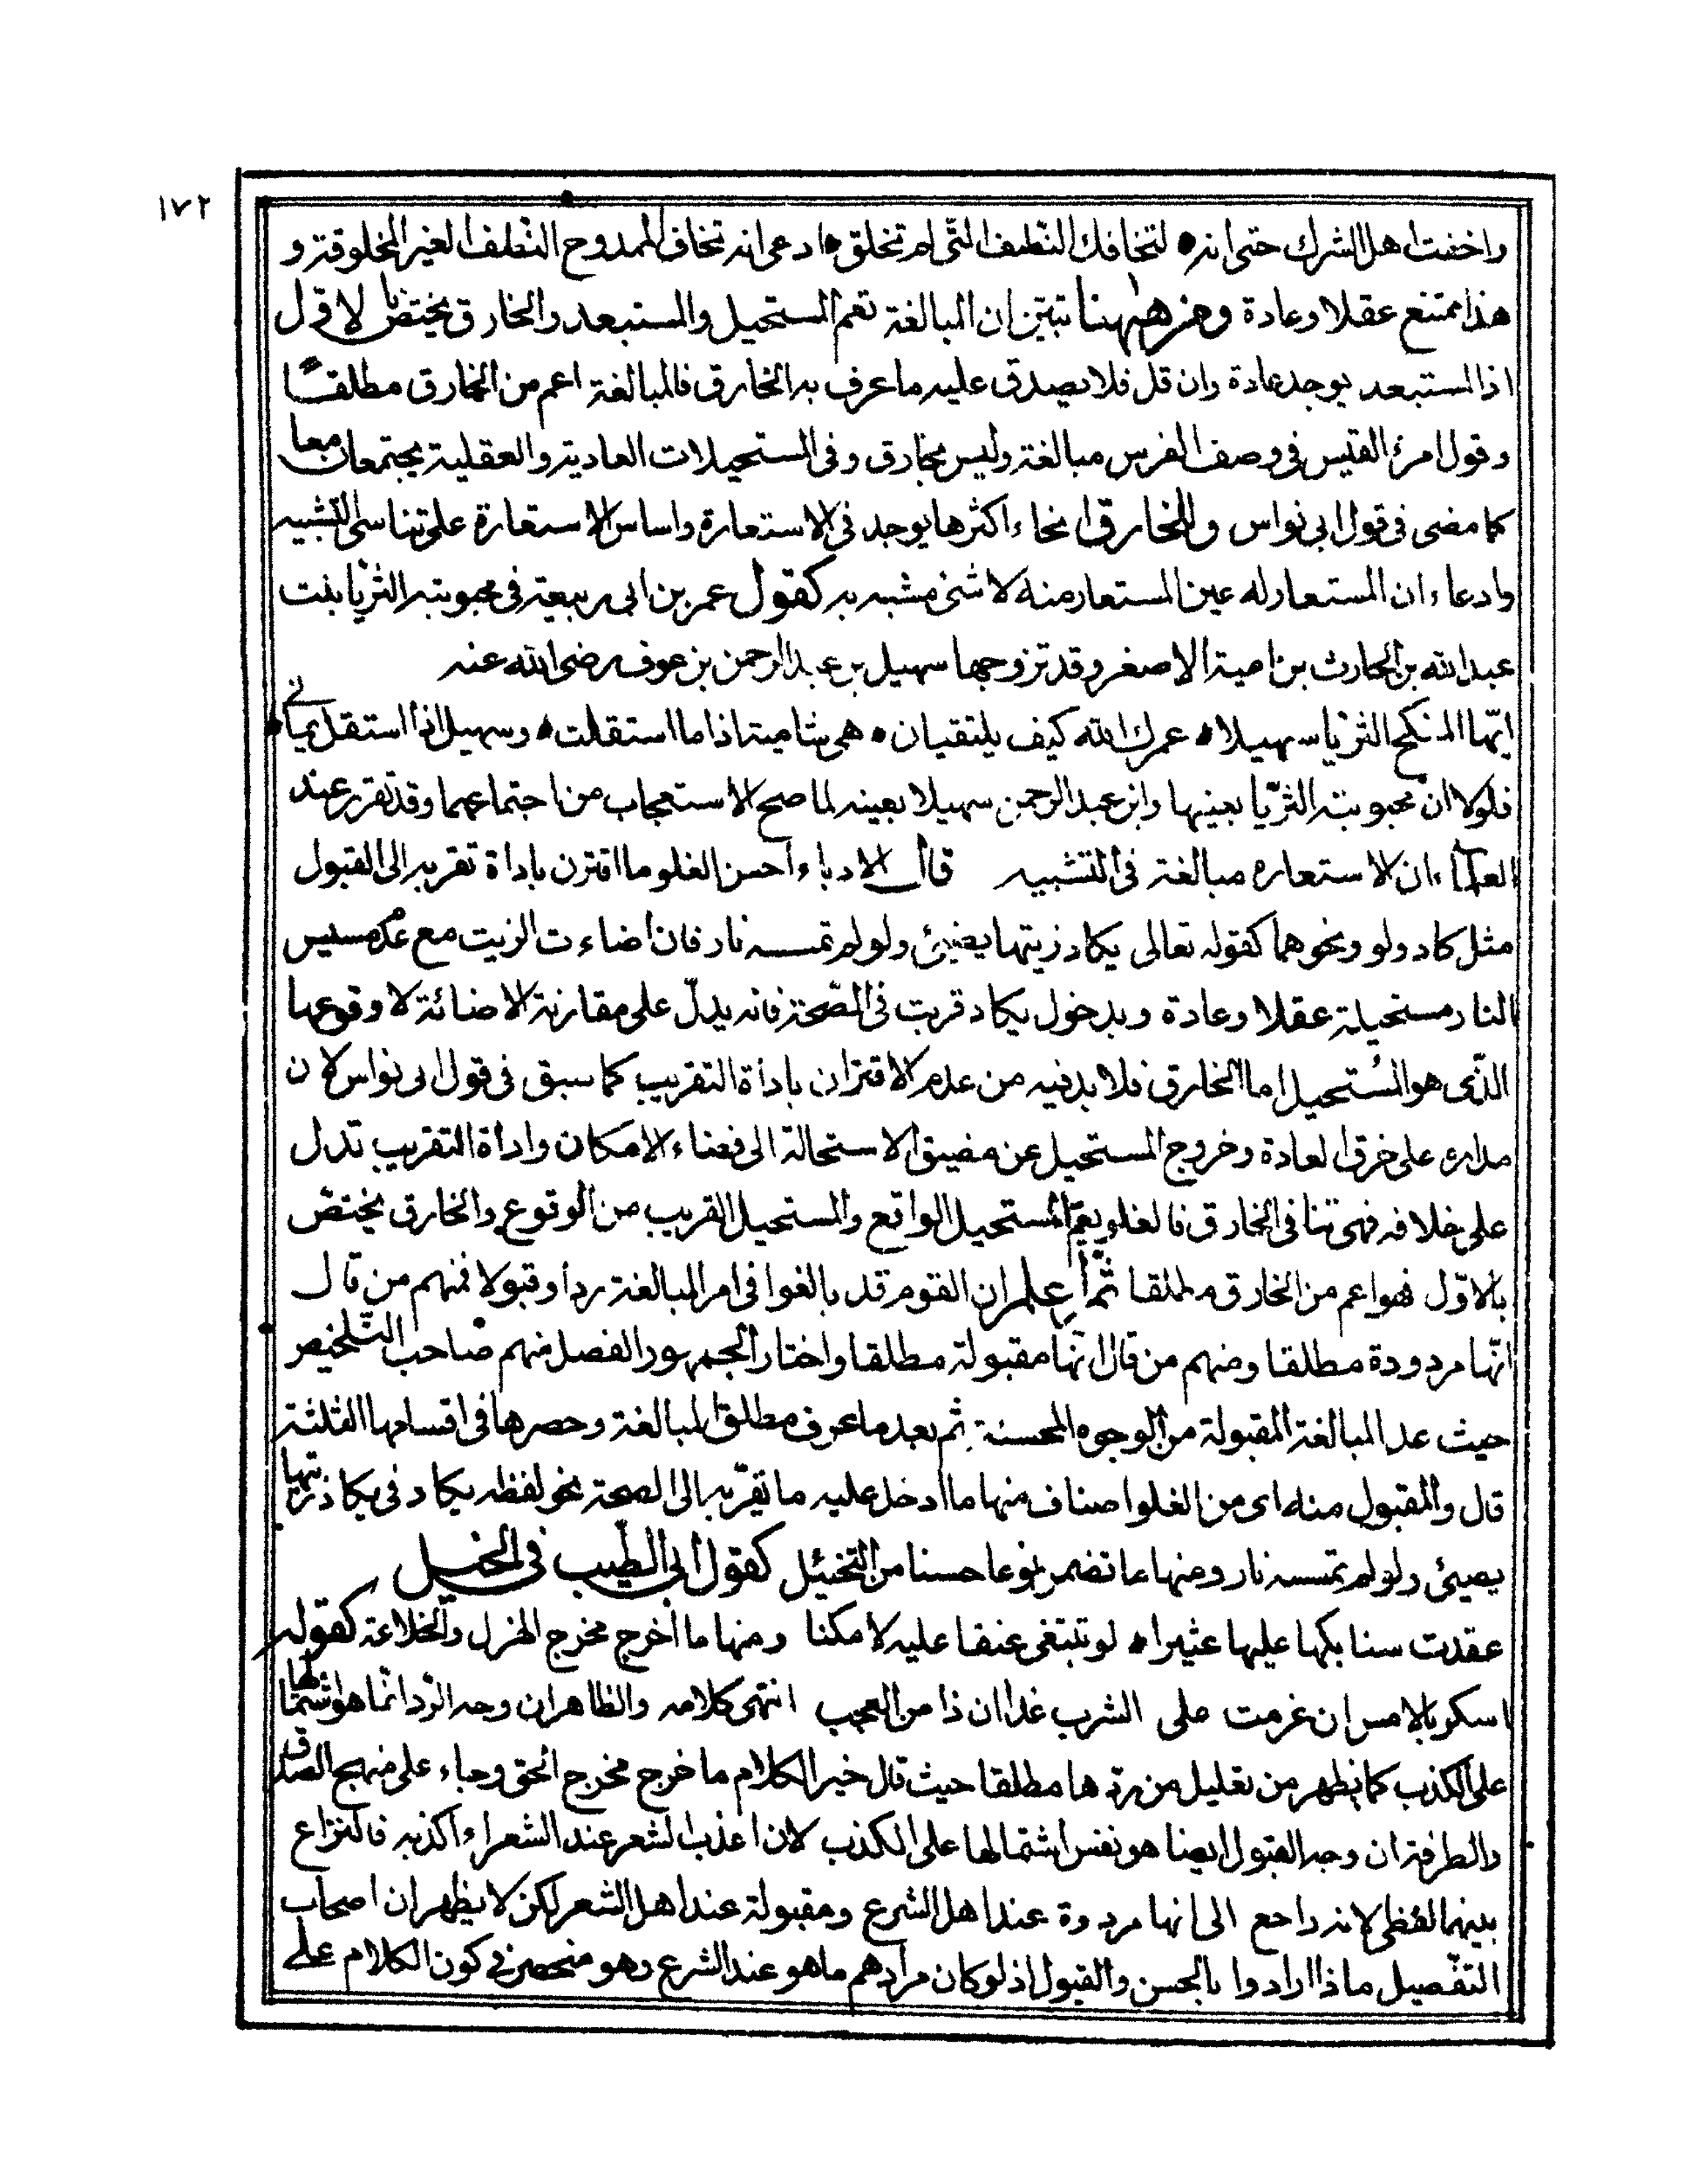 ١٧٢
واخفت اهل الشرك حتى انه • لتخافك النطف التى لم تخلق • ادعى انه تخاف الممدوح النطف الغير المخلوقة و
هذا ممتنع عقلا وعادة ومن ههنا تبين ان المبالغة تعم المستحيل والمستبعد والخارق يختص بالاول
اذ المستبعد يوجد عادة وان قل فلا يصدق عليه ما عرف به الخارق فالمبالغة اعم من الخارق مطلقا
وقول امرئ القيس فى وصف الفرس مبالغة وليس بخارق وفى المستحيلات العادية والعقلية يجتمعان معا
كما مضى فى قول ابى نواس وللخارق انحاء اكثرها يوجد فى الاستعارة واساس الاستعارة على تناسى التشبيه
وادعاء ان المستعار له عين المستعار منه لا شئ مشبه به كقول عمر بن ابى ربيعة فى محبوبته الثريا بنت
عبد الله بن الحارث بن امية الاصغر وقد تزوجها سهيل بن عبد الرحمن بن عوف رضى الله عنه
ايها المنكح الثريا سهيلا • عمرك الله كيف يلتقيان • هى شامية اذا ما استقلت • وسهيل اذا استقل يمانى •
فلولا ان محبوبته الثريا بعينها وابن عبد الرحمن سهيلا بعينه لما صح الاستعجاب من اجتماعهما وقد تقرر عند
العلماء ان الاستعاره مبالغة فى التشبيه قال الادباء احسن الغلو ما اقترن باداة تقربه الى القبول
مثل كاد ولو ونحوهما كقوله تعالى يكاد زيتها يضيئ ولو لم تمسسه نار فان اضاءت الزيت مع عدم مسيس
النار مستحيلة عقلا وعادة وبدخول يكاد قربت فى الصحة فانه يدل على مقاربة الاضائة لا وقوعها
الذى هو المستحيل اما الخارق فلا بد فيه من عدم الاقتران باداة التقريب كما سبق فى قول ابى نواس لان
مداره على خرق العادة وخروج المستحيل عن مضيق الاستحالة الى فضاء الامكان واداة التقريب تدل
على خلافه فهى تنافى الخارق فالغلو يعم المستحيل الواقع والمستحيل القريب من الوقوع والخارق يختص
بالاول فهو اعم من الخارق مطلقا ثم اعلم ان القوم قد بالغوا فى امر المبالغة ردا وقبولا فمنهم من قال
انها مردودة مطلقا ومنهم من قال انها مقبولة مطلقا واختار الجمهور الفصل منهم صاحب التلخيص
حيث عد المبالغة المقبولة من الوجوه المحسنة ثم بعد ما عرف مطلق المبالغة وحصرها فى اقسامها الثلثة
قال والمقبول منه اى من الغلو اصناف منها ما ادخل عليه ما تقربه الى الصحة نحو لفظه يكاد فى يكاد زيتها
يضيئ ولو لم تمسسه نار ومنها ما تضمن نوعا حسنا من التخئيل كقول ابى الطيب فى الخيل
عقدت سنابكها عليها عثيرا • لو تبتغى عنقا عليه لامكنا ومنها ما اخرج مخرج الهزل والخلاعة كقوله
اسكر بالامس ان عزمت على الشرب غدا ان ذا من العجب انتهى كلامه والظاهر ان وجه الرد انما هو اشتمالها
على الكذب كما يظهر من تعليل من ردها مطلقا حيث قال خير الكلام ما خرج مخرج الحق وجاء على منهج الصدق
والطرفة ان وجه القبول ايضا هو نفس اشتمالها على الكذب لان اعذب الشعر عند الشعراء اكذبه فالنزاع
بينهما لفظى لانه راجع الى انها مردودة عند اهل الشرع ومقبولة عند اهل الشعر لكن لا يظهر ان اصحاب
التفصيل ماذا ارادوا بالحسن والقبول اذ لو كان مرادهم ما هو عند الشرع وهو منحصر فى كون الكلام على